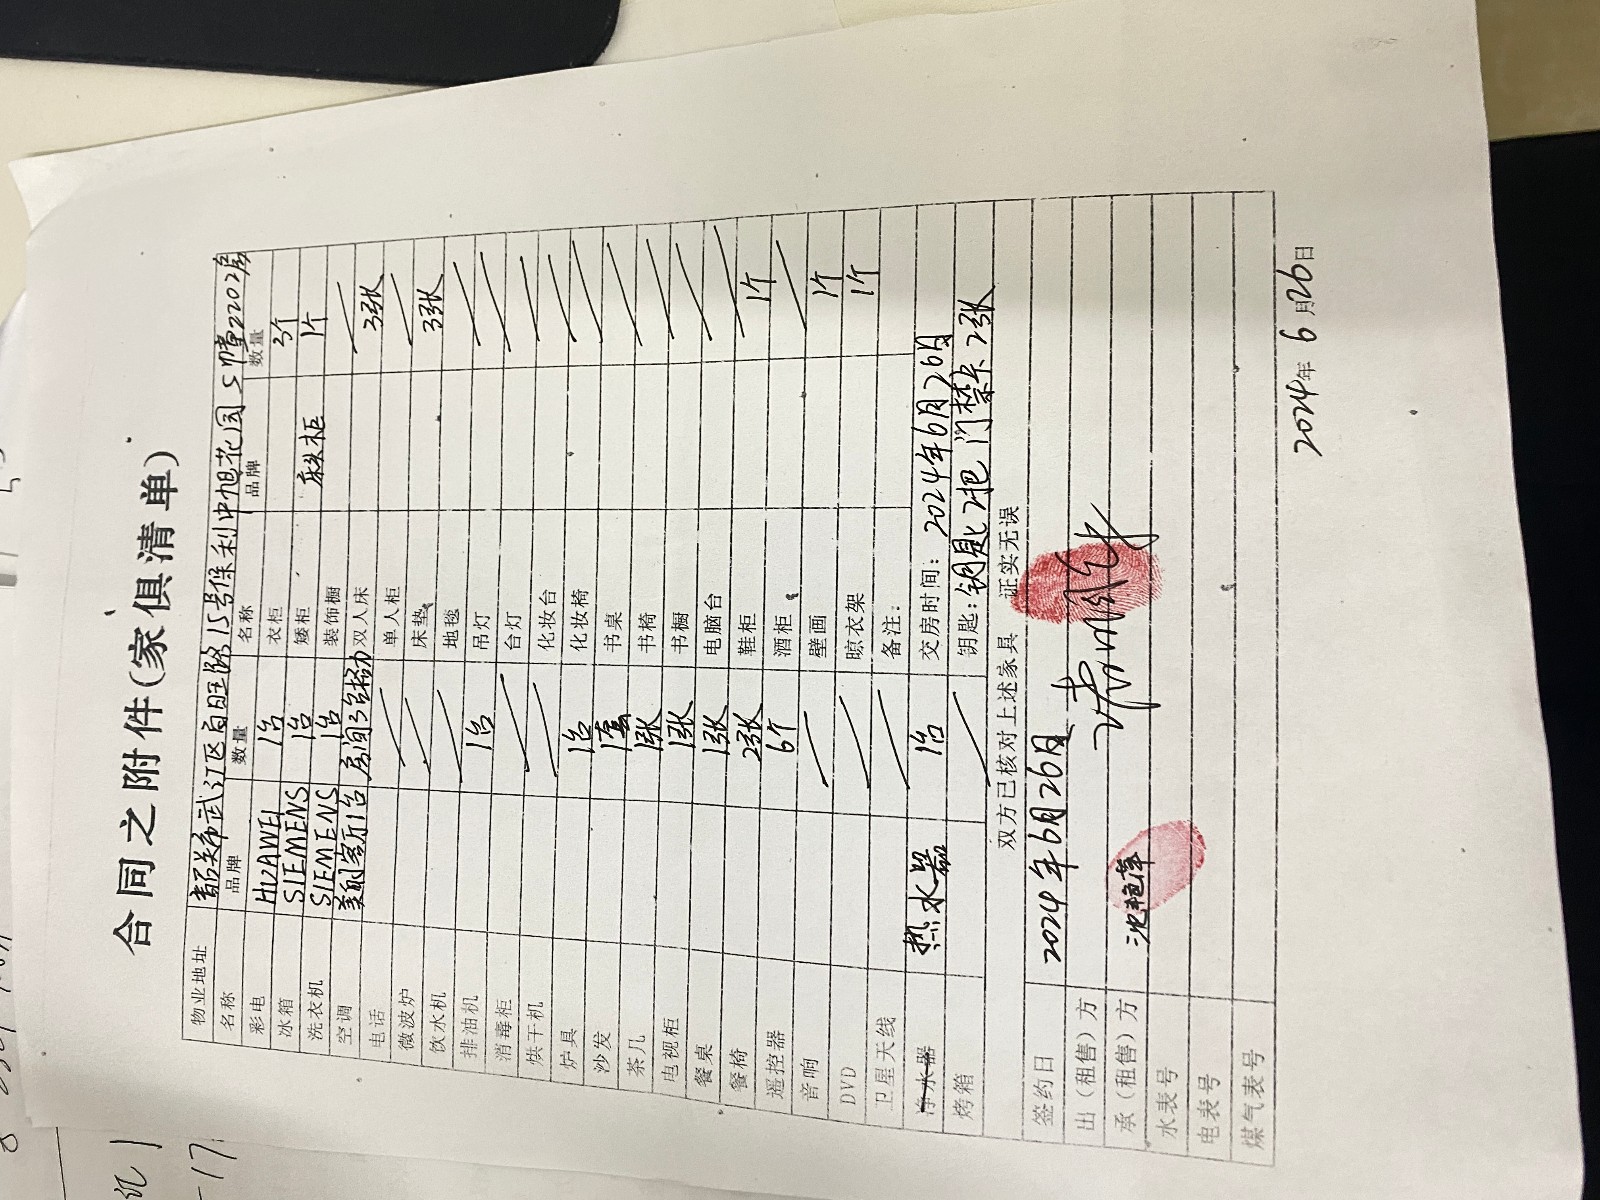 合同之附件(家俱清单)
物业地址 韶关市武江区百旺路15号保利中旭花园S幢2202房
名称 品牌 数量 名称 品牌 数量
彩电 HUAWEI 1台 衣柜 3个
冰箱 SIEMENS 1台 矮柜 床头柜 1个
洗衣机 SIEMENS 1台 装饰橱
空调 美的客厅1台 房间3台挂机 双人床 3张
电话 单人柜
微波炉 床垫 3张
饮水机 地毯
排油机 1台 吊灯
消毒柜 台灯
烘干机 化妆台
炉具 1台 化妆椅
沙发 1套 书桌
茶几 1张 书椅
电视柜 1张 书橱
餐桌 1张 电脑台
餐椅 2张 鞋柜 1个
遥控器 6个 酒柜
音响 壁画 1个
DVD 晾衣架 1个
卫星天线 备注:
净水器 热水器 1台 交房时间: 2024年6月26日
烤箱 钥匙: 钥匙2把 门禁卡2张
双方已核对上述家具 证实无误
签约日 2024年6月26日
出(租售)方
承(租售)方 沈艳萍
水表号
电表号
煤气表号
2024年6月26日